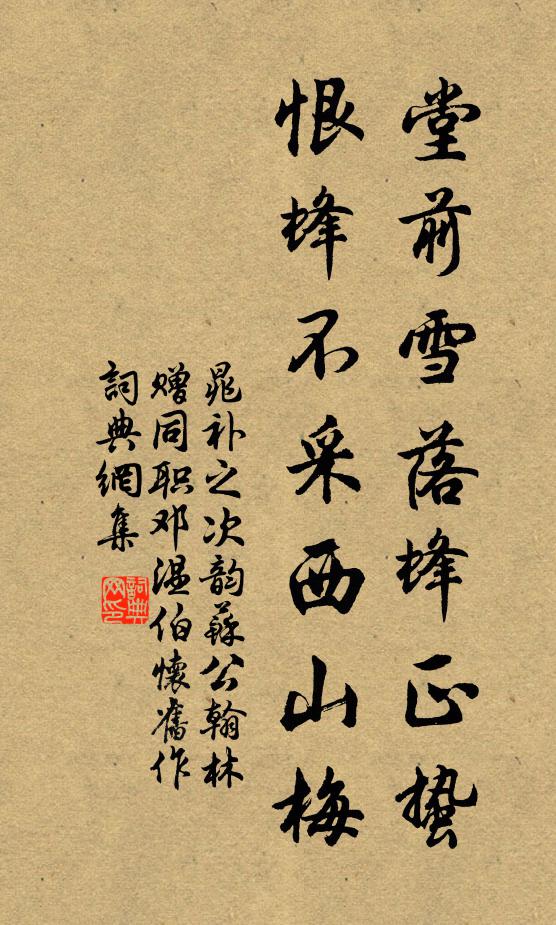 堂前雪落蜂正蟄
恨蜂不采西山梅
晁补之次韵蘇公翰林
赠同职邓温伯懷舊作
詞典網集
詞典网印